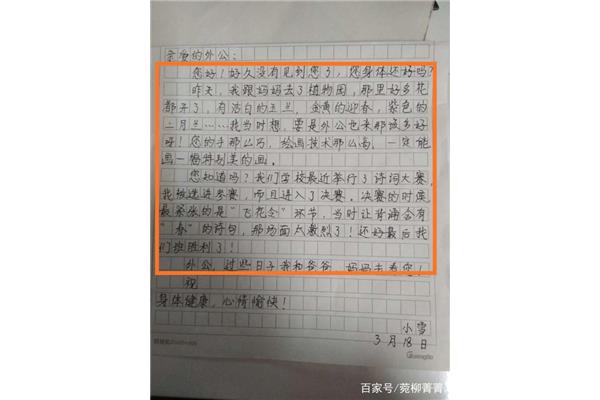 亲爱的外公：
您好！好久没有见到您了，您身体还好吗？
昨天，我跟妈妈去了植物园，那里好多花
都开了，有洁白的玉兰，金黄的迎春，紫色的
二月兰……我当时想，要是外公也来那该多好
呀！您的手那么巧，绘画技术那么高，一定能
画一幅特别美的画。
您知道吗？我们学校最近举行了诗词大赛，
我被选进参赛，而且进入了决赛。决赛的时候，
最紧张的是“飞花令”环节，当时让背诵含有
“春”的诗句，那场面太激烈了！还好最后我
们班胜利了！
外公，过些日子我和爸爸、妈妈去看您！
祝
身体健康，心情愉快！
小雪
3月18日
Guangbo
百家号/菀柳菁菁